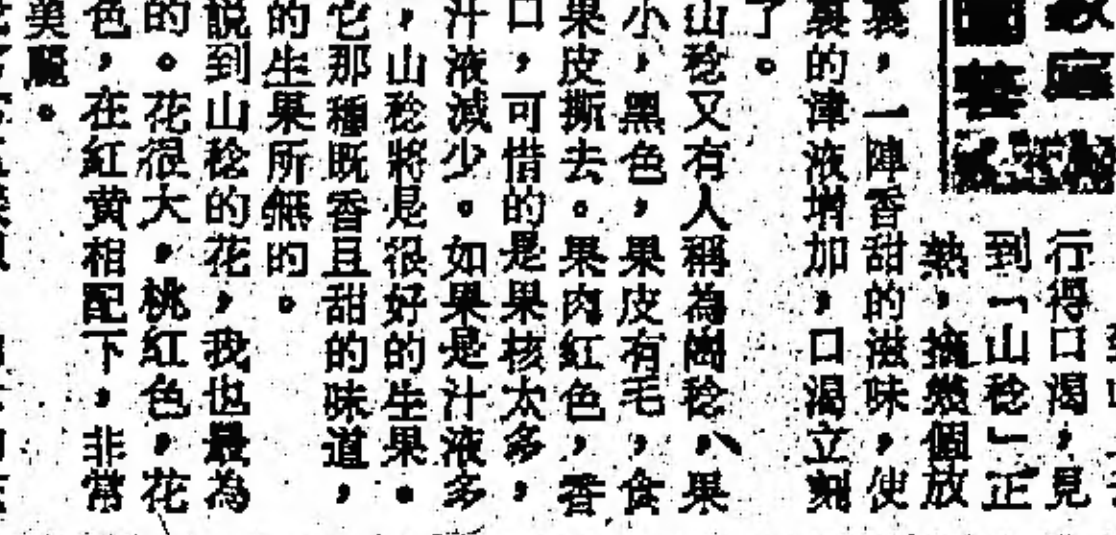 行得口渴,見
到「山稔」正
熟,摘幾個放
裏,一陣香甜的滋味,使
裏的津液增加,口渴立刻
了。
山稔又有人稱為崗稔,果
小,黑色,果皮有毛,食
果皮撕去。果肉紅色,香
口,可惜的是果核太多,
汁液減少。如果是汁液多
,山稔將是很好的生果。
它那種既香且甜的味道,
的生果所無的。
說到山稔的花,我也最為
的。花很大,桃紅色,花
色,在紅黃相配下,非常
美麗。